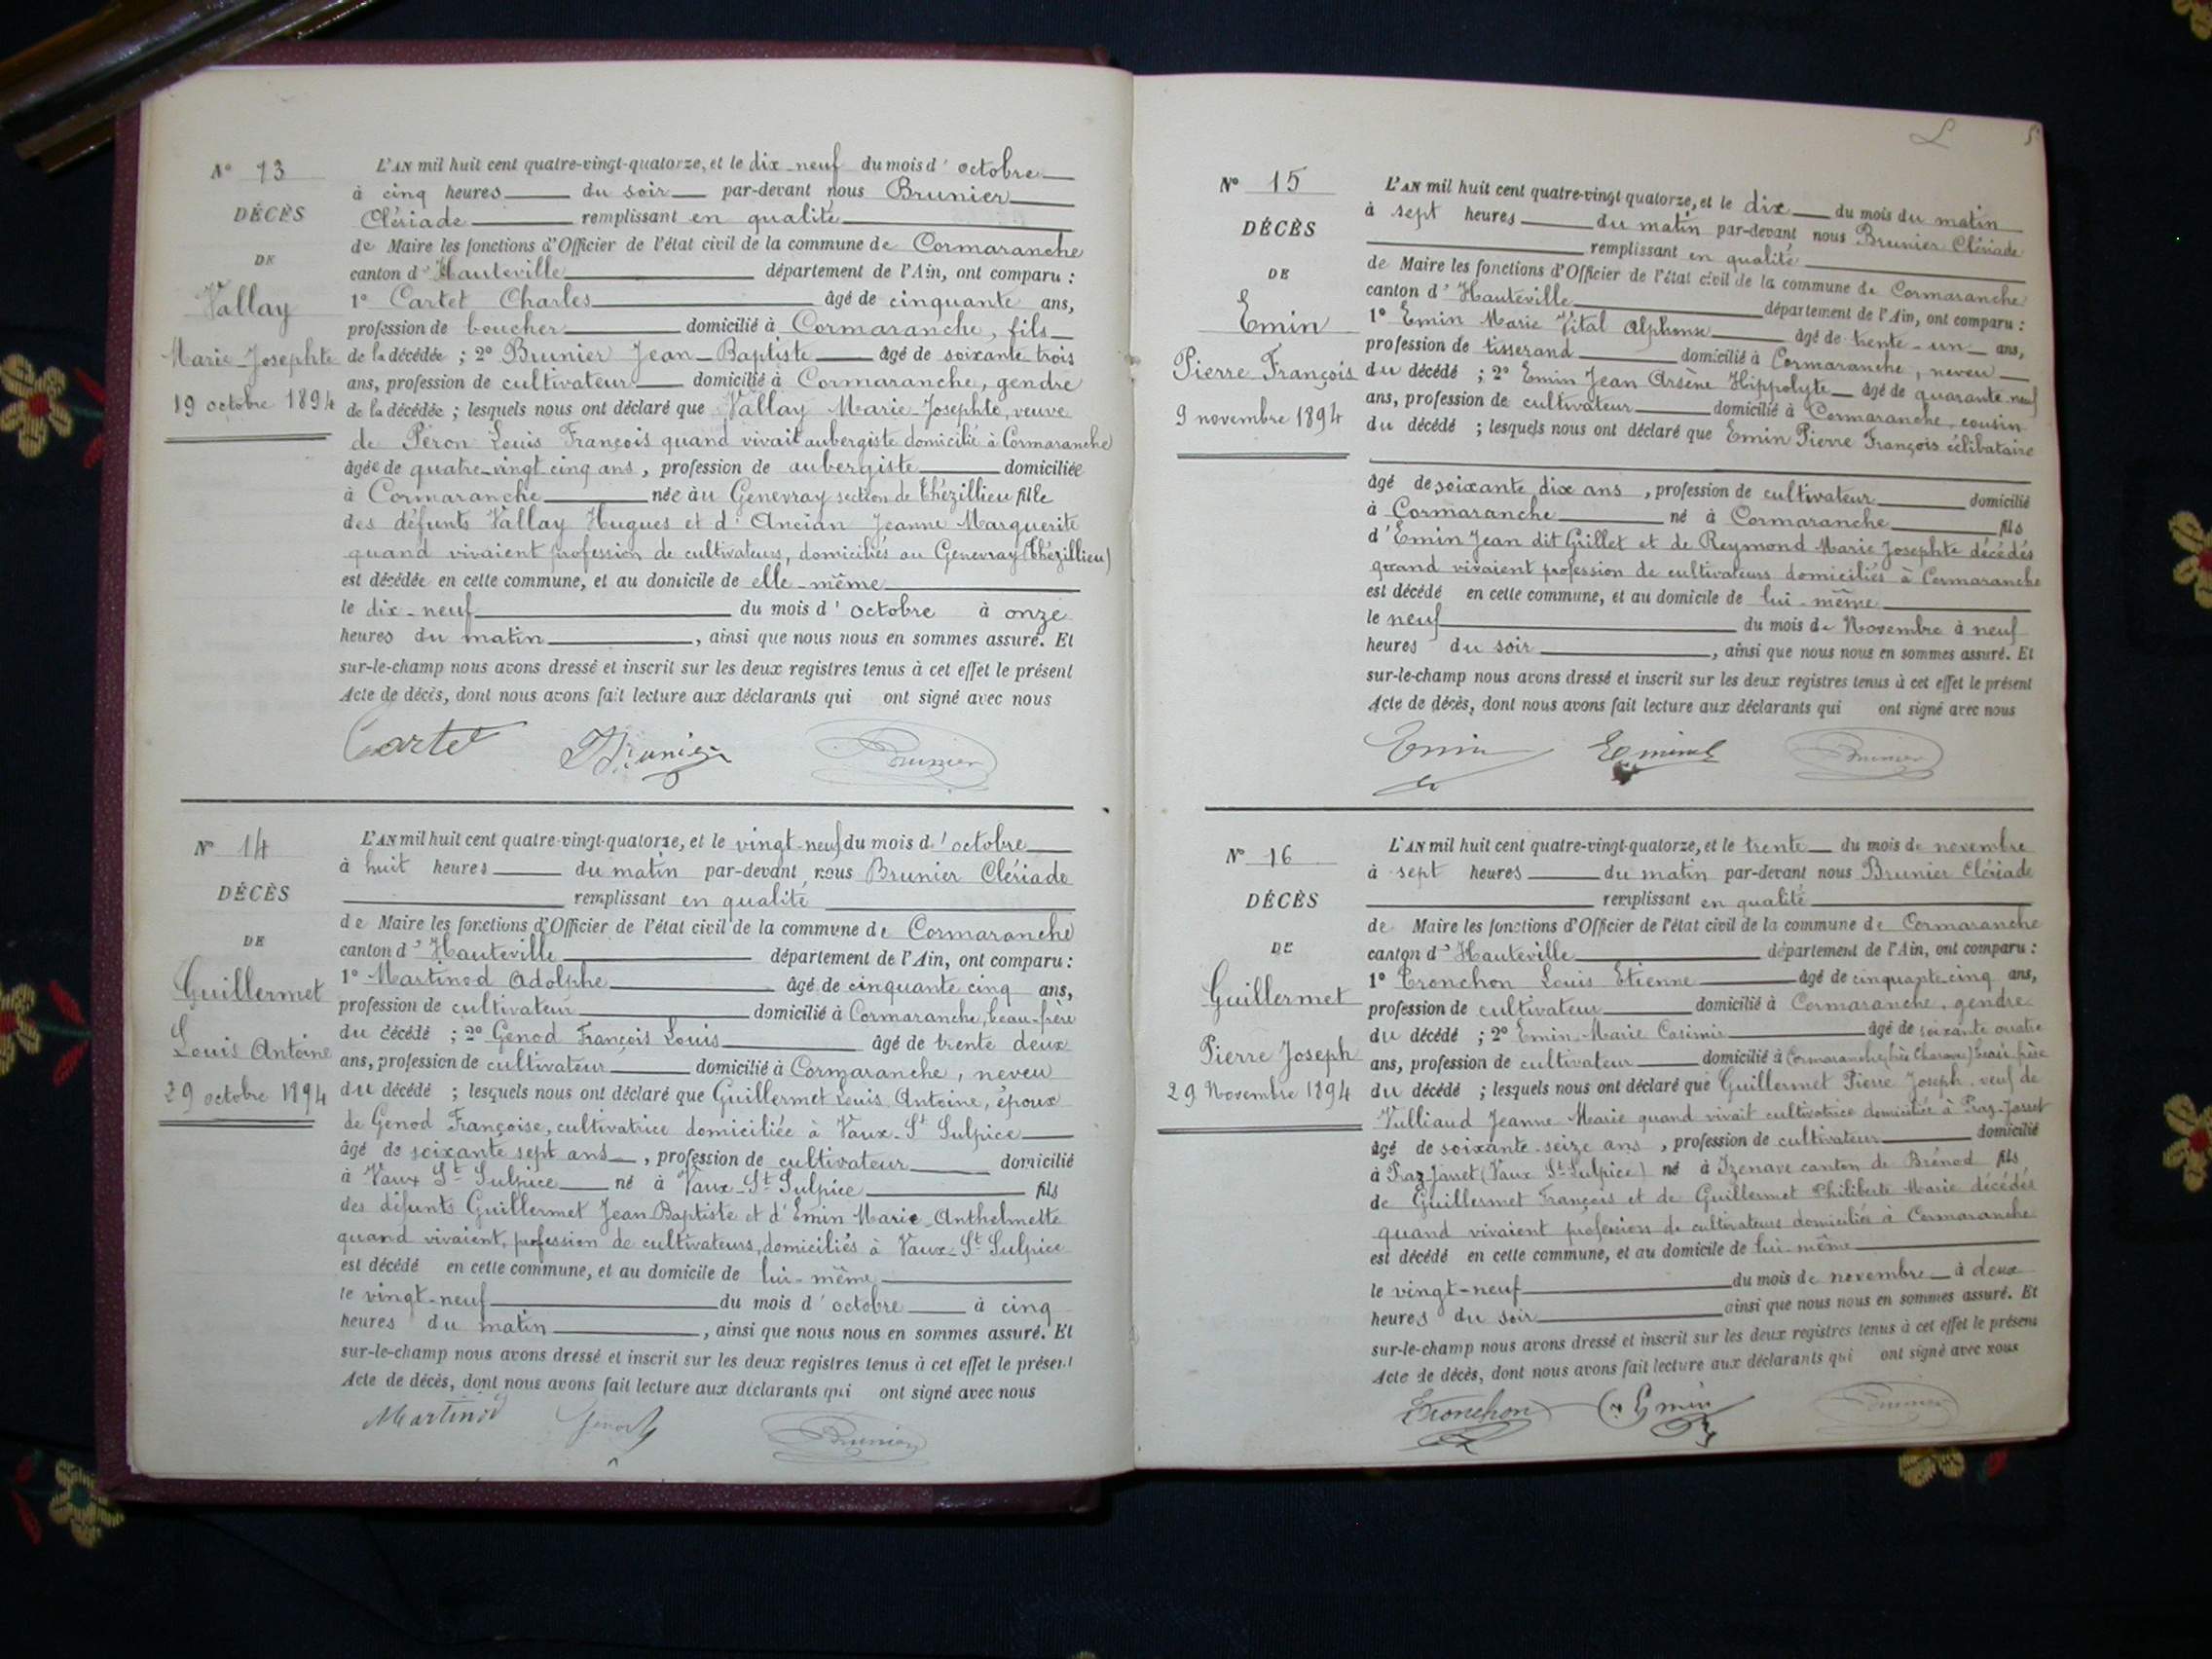 N° 13
DÉCÈS
DE
Vallay
Marie-Josephte
19 octobre 1894
L'AN mil huit cent quatre-vingt-quatorze, et le dix-neuf du mois d'octobre
à cinq heures du soir par-devant nous Brunier
Clériade remplissant en qualité
de Maire les fonctions d'Officier de l'état civil de la commune de Cormaranche
canton d'Hauteville département de l'Ain, ont comparu :
1° Cartet Charles âgé de cinquante ans,
profession de boucher domicilié à Cormaranche, fils
de la décédée ; 2° Brunier Jean-Baptiste âgé de soixante trois
ans, profession de cultivateur domicilié à Cormaranche, gendre
de la décédée ; lesquels nous ont déclaré que Vallay Marie-Josephte, veuve
de Péron Louis François quand vivait aubergiste domicilié à Cormaranche
âgée de quatre-vingt cinq ans, profession de aubergiste domiciliée
à Cormaranche née au Genevray section de Thézillieu fille
des défunts Vallay Hugues et d'Ancian Jeanne Marguerite
quand vivaient profession de cultivateurs, domiciliés au Genevray (Thézillieu)
est décédée en cette commune, et au domicile de elle-même
le dix-neuf du mois d'octobre à onze
heures du matin, ainsi que nous nous en sommes assuré. Et
sur-le-champ nous avons dressé et inscrit sur les deux registres tenus à cet effet le présent
Acte de décès, dont nous avons fait lecture aux déclarants qui ont signé avec nous
Cartet Brunier Brunier
N° 14
DÉCÈS
DE
Guillermet
Louis Antoine
29 octobre 1894
L'AN mil huit cent quatre-vingt-quatorze, et le vingt-neuf du mois d'octobre
à huit heures du matin par-devant nous Brunier Clériade
remplissant en qualité
de Maire les fonctions d'Officier de l'état civil de la commune de Cormaranche
canton d'Hauteville département de l'Ain, ont comparu :
1° Martinod Adolphe âgé de cinquante cinq ans,
profession de cultivateur domicilié à Cormaranche, beau-frère
du décédé ; 2° Genod François Louis âgé de trente deux
ans, profession de cultivateur domicilié à Cormaranche, neveu
du décédé ; lesquels nous ont déclaré que Guillermet Louis Antoine, époux
de Genod Françoise, cultivatrice domiciliée à Vaux-St Sulpice
âgé de soixante sept ans, profession de cultivateur domicilié
à Vaux St Sulpice né à Vaux-St Sulpice fils
des défunts Guillermet Jean Baptiste et d'Emin Marie-Anthelmette
quand vivaient, profession de cultivateurs, domiciliés à Vaux-St Sulpice
est décédé en cette commune, et au domicile de lui-même
le vingt-neuf du mois d'octobre à cinq
heures du matin, ainsi que nous nous en sommes assuré. Et
sur-le-champ nous avons dressé et inscrit sur les deux registres tenus à cet effet le présent
Acte de décès, dont nous avons fait lecture aux déclarants qui ont signé avec nous
Martinod Genod Brunier
N° 15
DÉCÈS
DE
Emin
Pierre François
9 novembre 1894
L'AN mil huit cent quatre-vingt quatorze, et le dix du mois du matin
à sept heures du matin par-devant nous Brunier Clériade
remplissant en qualité
de Maire les fonctions d'Officier de l'état civil de la commune de Cormaranche
canton d'Hauteville département de l'Ain, ont comparu :
1° Emin Marie Vital Alphonse âgé de trente-un ans,
profession de tisserand domicilié à Cormaranche, neveu
du décédé ; 2° Emin Jean Arsène Hippolyte âgé de quarante neuf
ans, profession de cultivateur domicilié à Cormaranche, cousin
du décédé ; lesquels nous ont déclaré que Emin Pierre François célibataire
âgé de soixante dix ans, profession de cultivateur domicilié
à Cormaranche né à Cormaranche fils
d'Emin Jean dit Grillet et de Reymond Marie Josephte décédés
quand vivaient profession de cultivateurs domiciliés à Cormaranche
est décédé en cette commune, et au domicile de lui-même
le neuf du mois de Novembre à neuf
heures du soir, ainsi que nous nous en sommes assuré. Et
sur-le-champ nous avons dressé et inscrit sur les deux registres tenus à cet effet le présent
Acte de décès, dont nous avons fait lecture aux déclarants qui ont signé avec nous
Emin Emin Brunier
N° 16
DÉCÈS
DE
Guillermet
Pierre Joseph
29 Novembre 1894
L'AN mil huit cent quatre-vingt-quatorze, et le trente du mois de novembre
à sept heures du matin par-devant nous Brunier Clériade
remplissant en qualité
de Maire les fonctions d'Officier de l'état civil de la commune de Cormaranche
canton d'Hauteville département de l'Ain, ont comparu :
1° Tronchon Louis Etienne âgé de cinquante cinq ans,
profession de cultivateur domicilié à Cormaranche, gendre
du décédé ; 2° Emin Marie Casimir âgé de soixante quatre
ans, profession de cultivateur domicilié à Cormaranche beau-frère
du décédé ; lesquels nous ont déclaré que Guillermet Pierre Joseph, veuf de
Vulliaud Jeanne-Marie quand vivait cultivatrice domiciliée à Praz-Jasset
âgé de soixante-seize ans, profession de cultivateur domicilié
à Praz Jasset (Vaux St Sulpice) né à Izenave canton de Brénod fils
de Guillermet François et de Guillermet Philiberte Marie décédés
quand vivaient profession de cultivateurs domiciliés à Cormaranche
est décédé en cette commune, et au domicile de lui-même
le vingt-neuf du mois de novembre à deux
heures du soir ainsi que nous nous en sommes assuré. Et
sur-le-champ nous avons dressé et inscrit sur les deux registres tenus à cet effet le présent
Acte de décès, dont nous avons fait lecture aux déclarants qui ont signé avec nous
Tronchon Emin Brunier